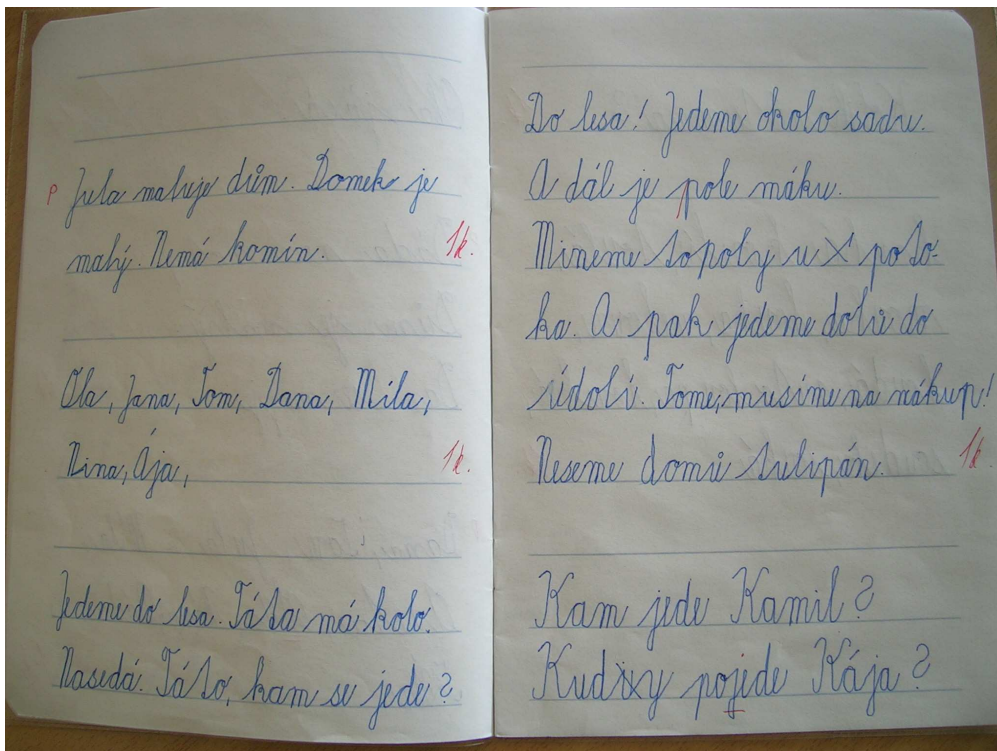 p Jula maluje dům. Domek je
malý. Nemá komín. 1k.
Ola, Jana, Tom, Dana, Míla,
Nina, Ája, 1k.
Jedeme do lesa. Táta má kolo.
Nasedá. Táto, kam se jede?
Do lesa! Jedeme okolo sadu.
A dál je pole máku.
Mineme topoly u poto-
ka. A pak jedeme dolů do
údolí. Tome, musíme na nákup!
Neseme domů tulipán. 1k.
Kam jede Kamil?
Kudy pojede Kája?